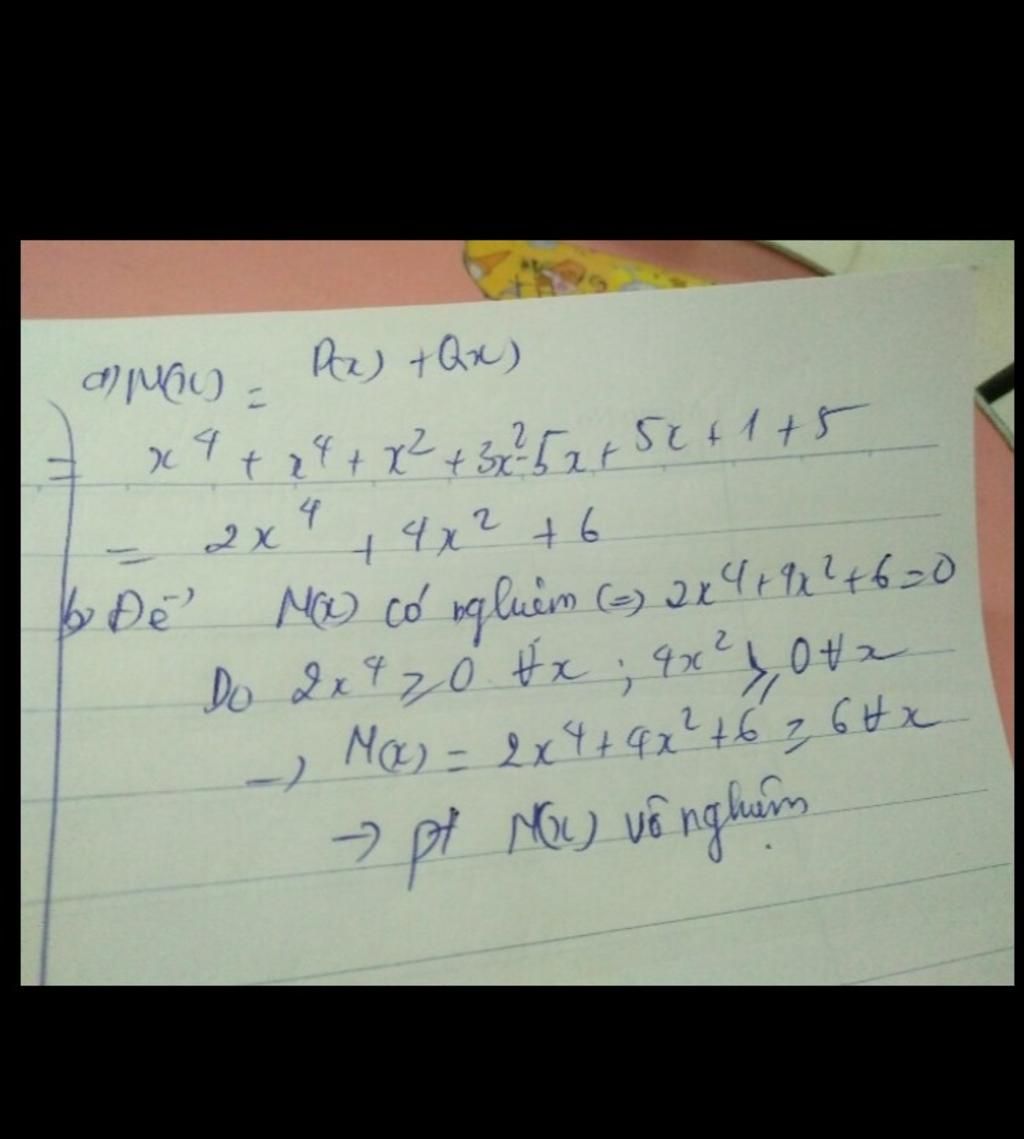 a) M(x) = P(x) + Q(x)
= x⁴ + x⁴ + x² + 3x² - 5x + 5x + 1 + 5
= 2x⁴ + 4x² + 6
b) Để M(x) có nghiệm (=) 2x⁴ + 4x² + 6 = 0
Do 2x⁴ ≥ 0 ∀x ; 4x² ≥ 0 ∀x
→ M(x) = 2x⁴ + 4x² + 6 ≥ 6 ∀x
→ pt M(x) vô nghiệm.